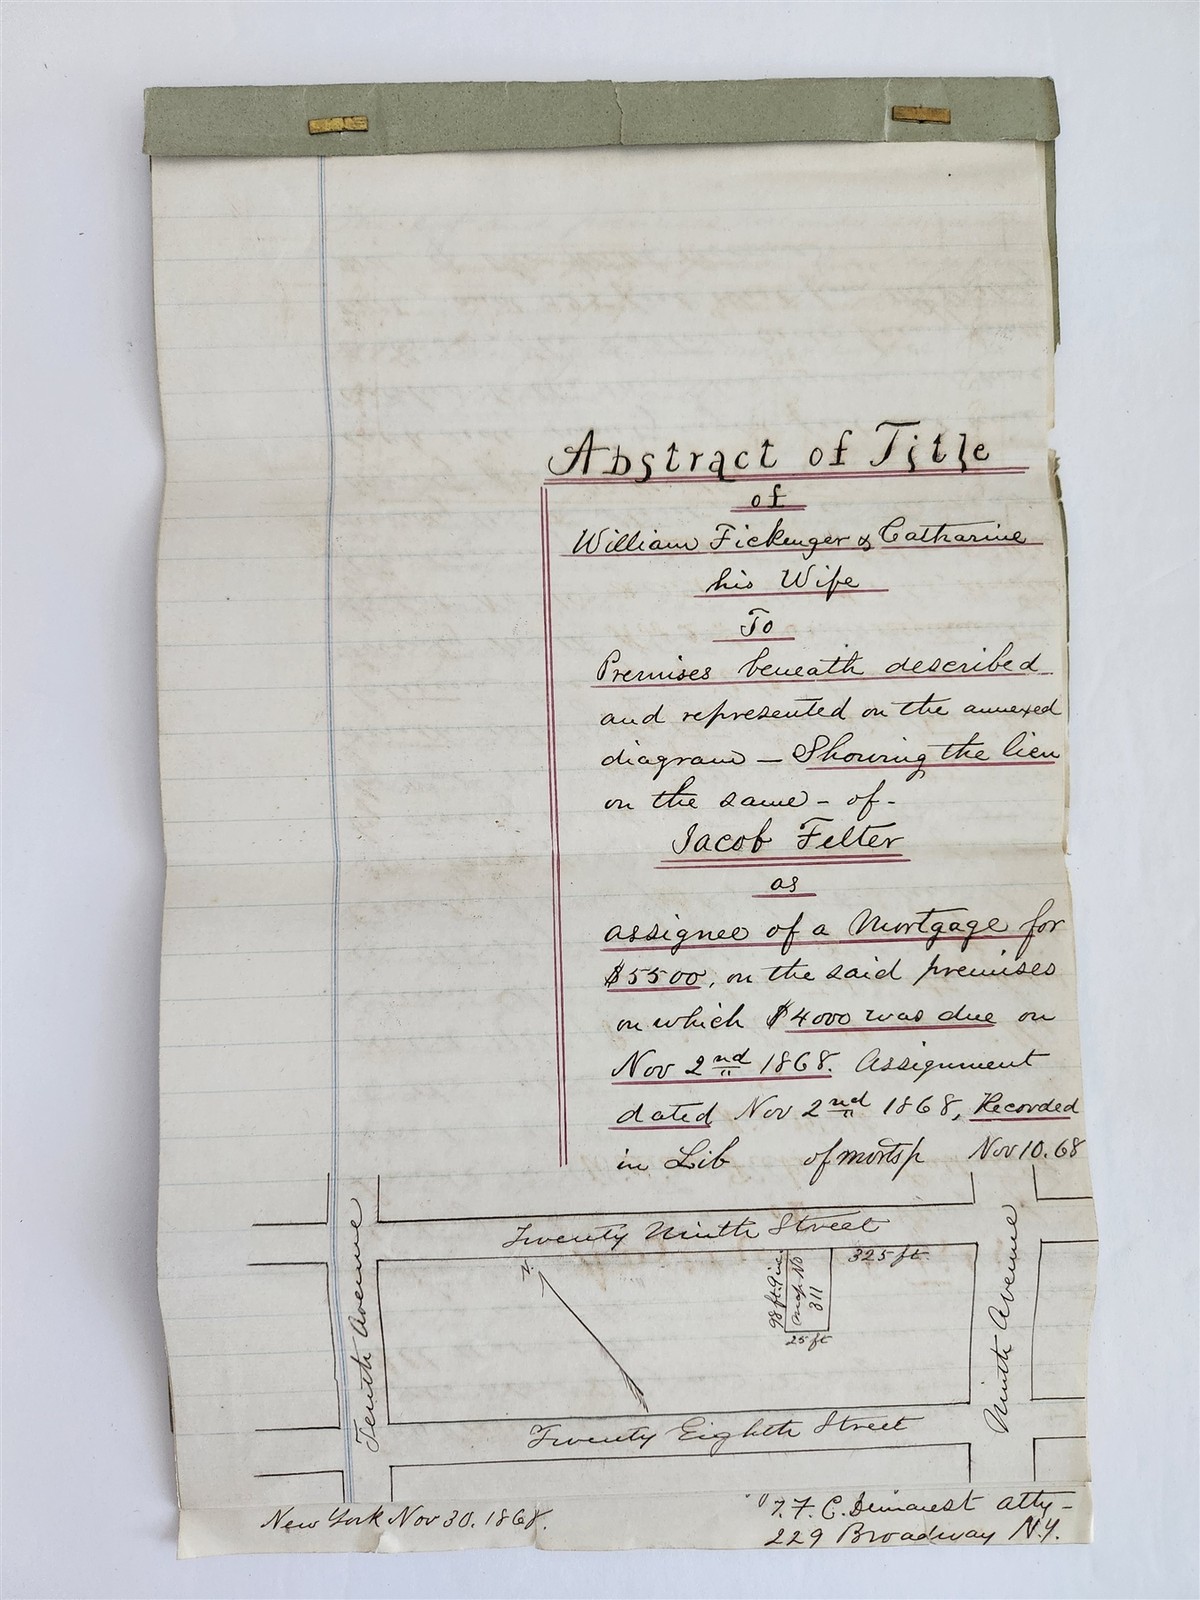 Abstract of Title
of
William Fickenger & Catharine
his Wife
To
Premises beneath described
and represented on the annexed
diagram – Showing the lien
on the same - of -
Jacob Felter
as
assignee of a Mortgage for
$5500, on the said premises
on which $4000 was due on
Nov 2nd 1868. Assignment
dated Nov 2nd 1868, Recorded
in Lib of mortsp Nov 10. 68
Twenty Ninth Street
325 ft
98 ft. 9 in.
Map No
311
25 ft
Tenth Avenue
Ninth Avenue
N
Twenty Eighth Street
New York Nov 30. 1868.
F. C. Demarest atty -
229 Broadway N.Y.